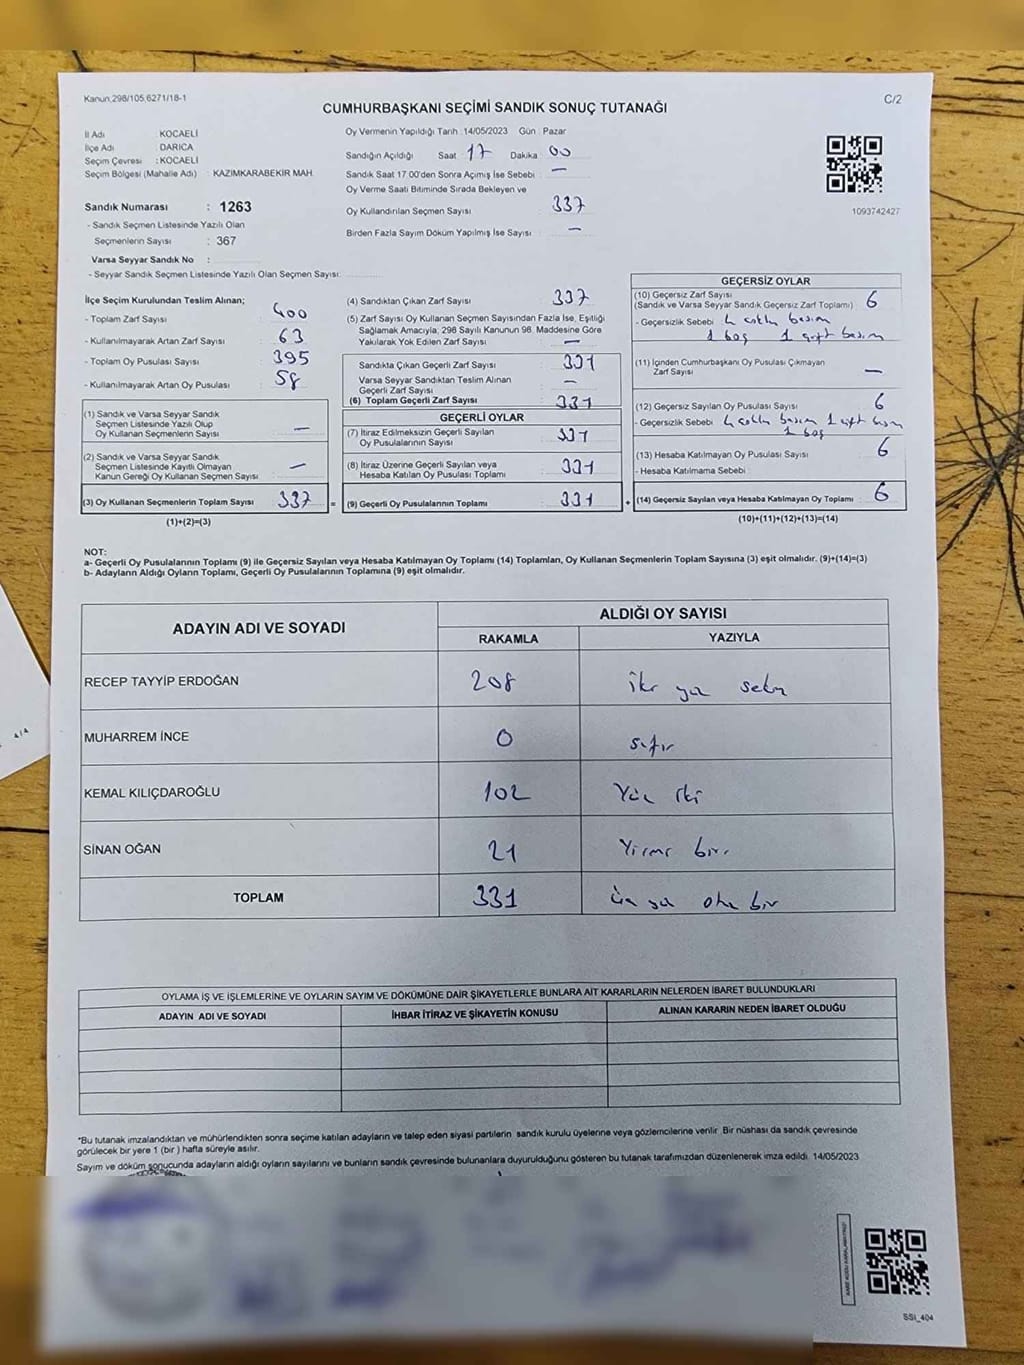 Kanun,298/105,6271/18-1
C/2
CUMHURBAŞKANI SEÇİMİ SANDIK SONUÇ TUTANAĞI
İl Adı : KOCAELİ
İlçe Adı : DARICA
Seçim Çevresi : KOCAELİ
Seçim Bölgesi (Mahalle Adı) : KAZIMKARABEKİR MAH.
Sandık Numarası : 1263
- Sandık Seçmen Listesinde Yazılı Olan
Seçmenlerin Sayısı : 367
Varsa Seyyar Sandık No :
- Seyyar Sandık Seçmen Listesinde Yazılı Olan Seçmen Sayısı:
Oy Vermenin Yapıldığı Tarih :14/05/2023 Gün : Pazar
Sandığın Açıldığı Saat 17 Dakika 00
Sandık Saat 17.00'den Sonra Açımış İse Sebebi : —
Oy Verme Saati Bitiminde Sırada Bekleyen ve
Oy Kullandırılan Seçmen Sayısı : 337
Birden Fazla Sayım Döküm Yapılmış İse Sayısı : —
1093742427
İlçe Seçim Kurulundan Teslim Alınan;
- Toplam Zarf Sayısı : 400
- Kullanılmayarak Artan Zarf Sayısı : 63
- Toplam Oy Pusulası Sayısı : 395
- Kullanılmayarak Artan Oy Pusulası : 58
(1) Sandık ve Varsa Seyyar Sandık
Seçmen Listesinde Yazılı Olup
Oy Kullanan Seçmenlerin Sayısı : —
(2) Sandık ve Varsa Seyyar Sandık
Seçmen Listesinde Kayıtlı Olmayan
Kanun Gereği Oy Kullanan Seçmen Sayısı : —
(3) Oy Kullanan Seçmenlerin Toplam Sayısı : 337
(1)+(2)=(3)
(4) Sandıktan Çıkan Zarf Sayısı : 337
(5) Zarf Sayısı Oy Kullanan Seçmen Sayısından Fazla İse, Eşitliği
Sağlamak Amacıyla, 298 Sayılı Kanunun 98. Maddesine Göre
Yakılarak Yok Edilen Zarf Sayısı : —
Sandıkta Çıkan Geçerli Zarf Sayısı : 331
Varsa Seyyar Sandıktan Teslim Alınan
Geçerli Zarf Sayısı : —
(6) Toplam Geçerli Zarf Sayısı : 331
GEÇERLİ OYLAR
(7) İtiraz Edilmeksizin Geçerli Sayılan
Oy Pusulalarının Sayısı : 331
(8) İtiraz Üzerine Geçerli Sayılan veya
Hesaba Katılan Oy Pusulası Toplamı : 331
= (9) Geçerli Oy Pusulalarının Toplamı : 331 +
GEÇERSİZ OYLAR
(10) Geçersiz Zarf Sayısı
(Sandık ve Varsa Seyyar Sandık Geçersiz Zarf Toplamı) : 6
- Geçersizlik Sebebi : 4 çoklu basım
1 boş 1 çift basım
(11) İçinden Cumhurbaşkanı Oy Pusulası Çıkmayan
Zarf Sayısı : —
(12) Geçersiz Sayılan Oy Pusulası Sayısı : 6
- Geçersizlik Sebebi : 4 çoklu basım 1 çift basım
1 boş
(13) Hesaba Katılmayan Oy Pusulası Sayısı : 6
- Hesaba Katılmama Sebebi :
(14) Geçersiz Sayılan veya Hesaba Katılmayan Oy Toplamı : 6
(10)+(11)+(12)+(13)=(14)
NOT:
a- Geçerli Oy Pusulalarının Toplamı (9) ile Geçersiz Sayılan veya Hesaba Katılmayan Oy Toplamı (14) Toplamları, Oy Kullanan Seçmenlerin Toplam Sayısına (3) eşit olmalıdır. (9)+(14)=(3)
b- Adayların Aldığı Oyların Toplamı, Geçerli Oy Pusulalarının Toplamına (9) eşit olmalıdır.
ADAYIN ADI VE SOYADI
ALDIĞI OY SAYISI
RAKAMLA YAZIYLA
RECEP TAYYİP ERDOĞAN 208 iki yüz sekiz
MUHARREM İNCE 0 sıfır
KEMAL KILIÇDAROĞLU 102 Yüz iki
SİNAN OĞAN 21 Yirmi bir
TOPLAM 331 üç yüz otuz bir
OYLAMA İŞ VE İŞLEMLERİNE VE OYLARIN SAYIM VE DÖKÜMÜNE DAİR ŞİKAYETLERLE BUNLARA AİT KARARLARIN NELERDEN İBARET BULUNDUKLARI
ADAYIN ADI VE SOYADI İHBAR İTİRAZ VE ŞİKAYETİN KONUSU ALINAN KARARIN NEDEN İBARET OLDUĞU
*Bu tutanak imzalandıktan ve mühürlendikten sonra seçime katılan adayların ve talep eden siyasi partilerin sandık kurulu üyelerine veya gözlemcilerine verilir. Bir nüshası da sandık çevresinde
görülecek bir yere 1 (bir) hafta süreyle asılır.
Sayım ve döküm sonucunda adayların aldığı oyların sayılarını ve bunların sandık çevresinde bulunanlara duyurulduğunu gösteren bu tutanak tarafımızdan düzenlenerek imza edildi. 14/05/2023
SSI_404
4/4